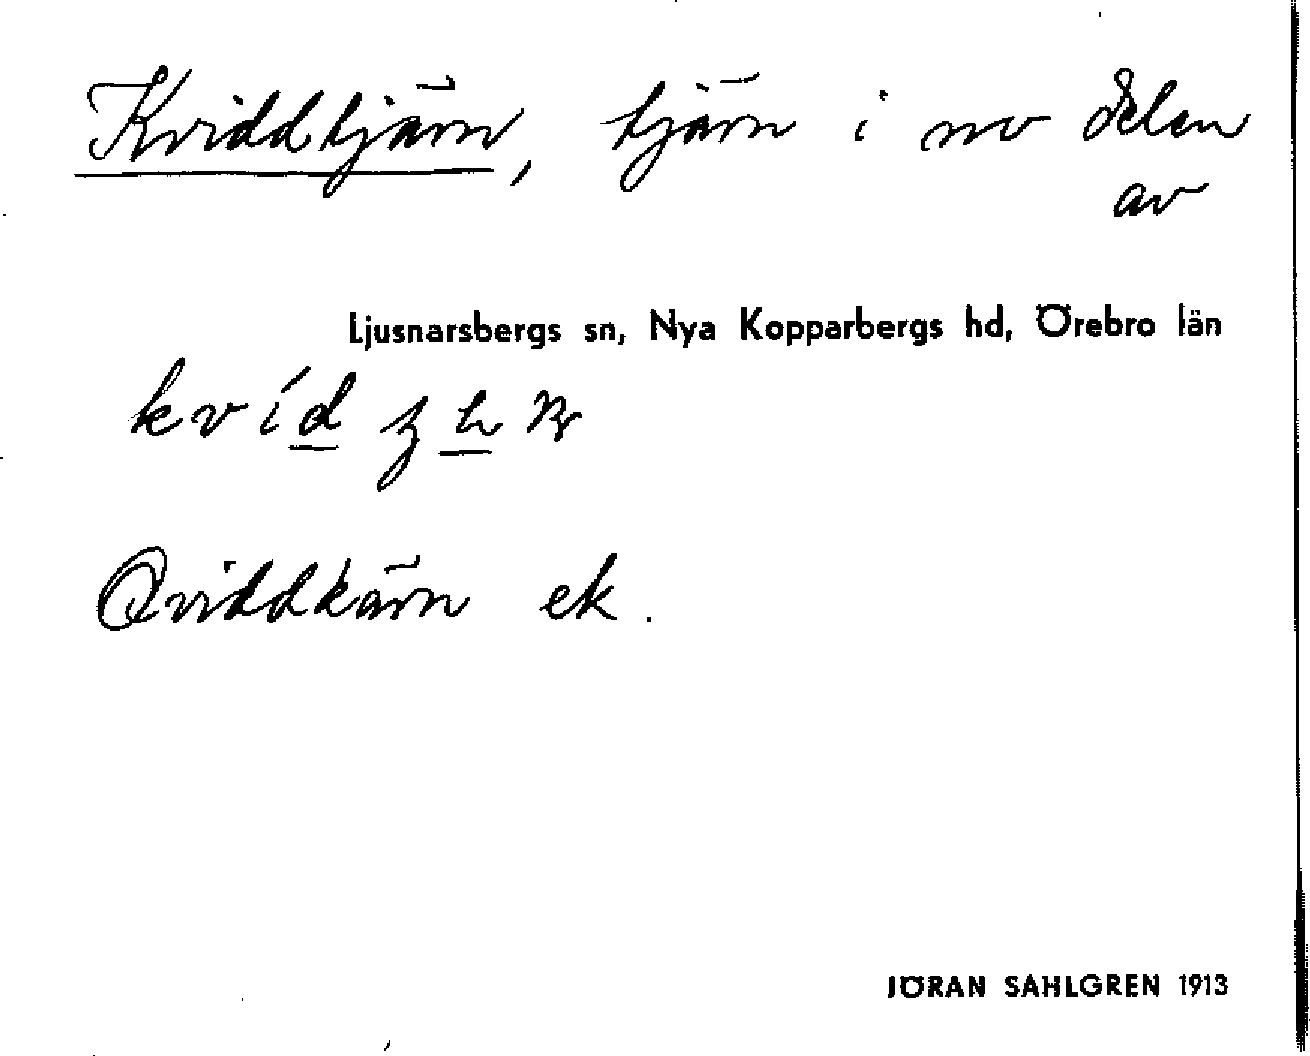 Kviddtjärn, tjärn i nv delen
av
Ljusnarsbergs sn, Nya Kopparbergs hd, Örebro län
Qviddkärn ek.
JÖRAN SAHLGREN 1913